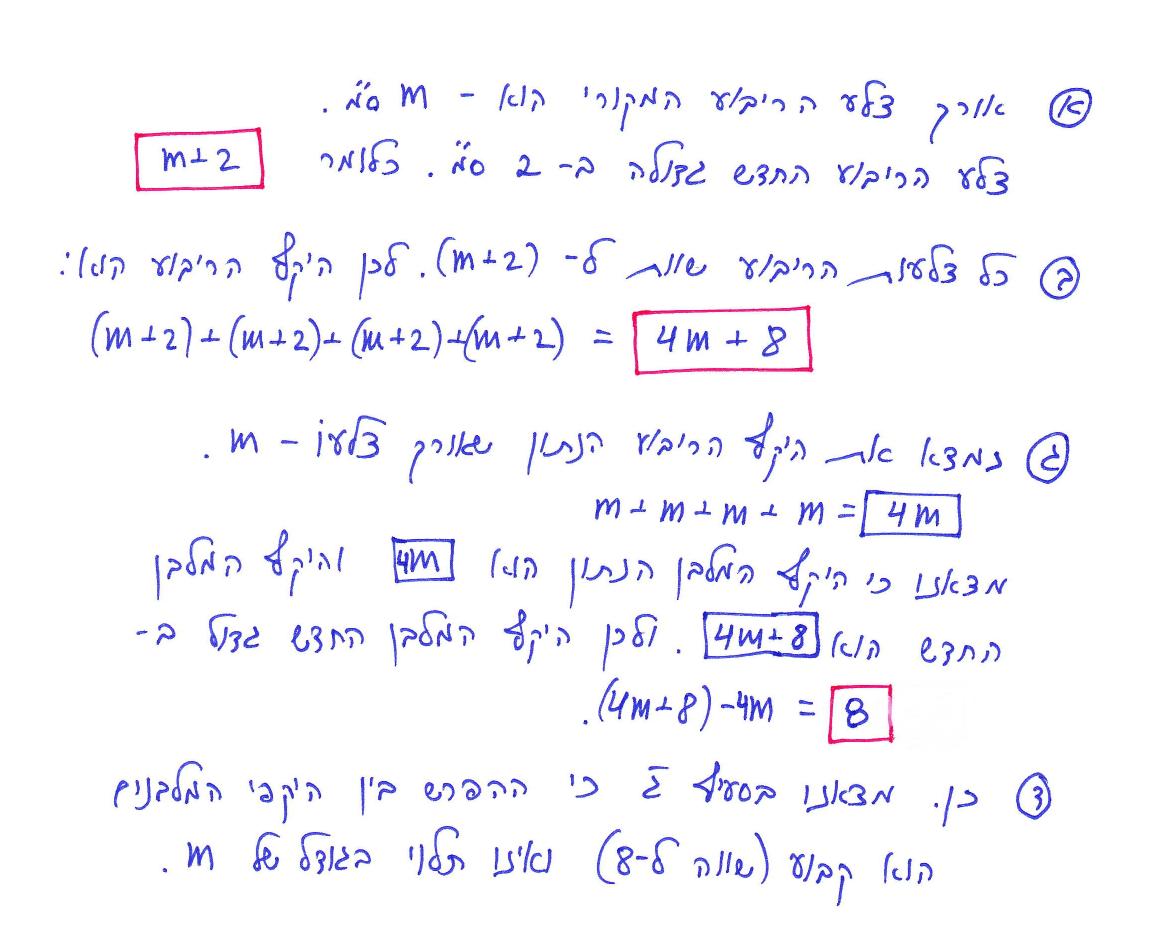 א אורך צלע הריבוע המקורי הוא - m ס"מ.
צלע הריבוע החדש גדולה ב- 2 ס"מ. כלומר m+2
ב כל צלעות הריבוע שוות ל- (m+2). לכן היקף הריבוע הוא:
(m+2)+(m+2)+(m+2)+(m+2) = 4m + 8
ג נמצא את היקף הריבוע הנתון שאורך צלעו - m.
m+m+m+m = 4m
מצאנו כי היקף המלבן הנתון הוא 4m והיקף המלבן
החדש הוא 4m+8. ולכן היקף המלבן החדש גדול ב-
(4m+8)-4m = 8.
ד כן. מצאנו בסעיף ג כי ההפרש בין היקפי המלבנים
הוא קבוע (שווה ל-8) ואינו תלוי בגודל של m.